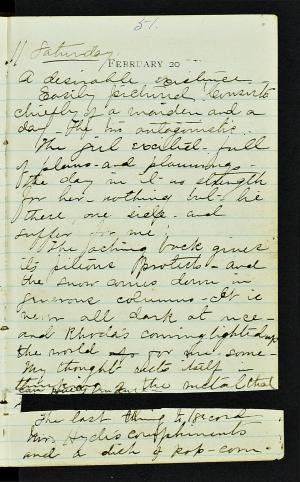 51.
11 Saturday.
FEBRUARY 20
A desirable existence
Easily pictured. Consists
chiefly of a maiden and a
day - The two antagonistic.
The girl excited - full
of plans - and plannings -
The day in it - no strength
for her - nothing but - lie
there, one side - and
suffer for me!
The aching back gives
its piteous Protests - and
the snow comes down in
generous columns - It is
never all dark at once -
and Rhoda's coming lighted up
the world for me some -
My thoughts
the metal that
The last thing to record
Mrs Hyde's compliments
and a dish of pop-corn.